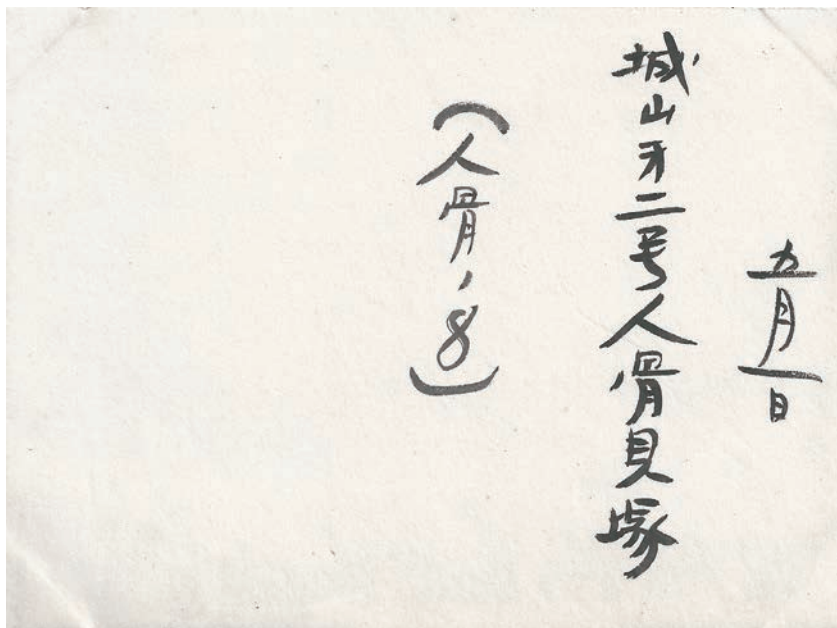 五月一日
城山才二号人骨貝塚
(人骨ノ8)